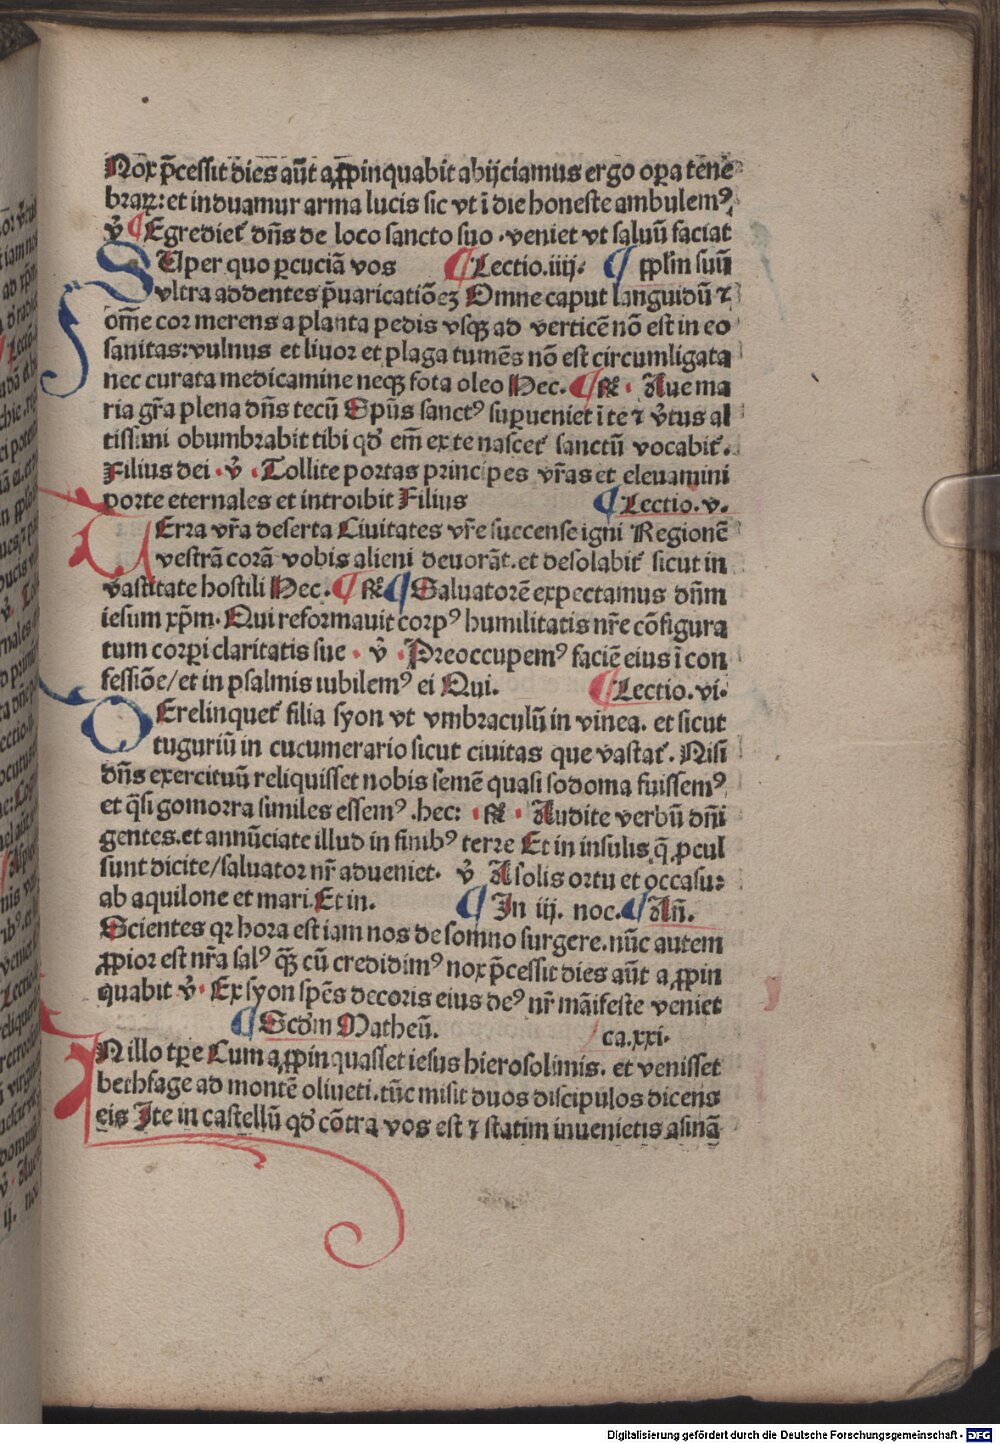 Nox p̄cessit dies aūt a ꝓpinquabit abijciamus ergo oꝑa tene
braꝝ: et induamur arma lucis sic vt ī die honeste ambulemꝰ
v̄ Egrediet᷑ dn̄s de loco sancto suo · veniet vt saluū faciat
SUper quo ꝑcuciā vos Lectio.iiij. pp̄lm suū
vltra addentes p̄uaricatiōeꝫ Omne caput languidū ⁊
om̄e cor merens a planta pedis vsqꝫ ad verticē nō est in eo
sanitas: vulnus et liuor et plaga tumēs nō est circumligata
nec curata medicamine neqꝫ fota oleo Hec. R̄ · Aue ma
ria gr̄a plena dn̄s tecū Sp̄us sanctꝰ suꝑueniet ī te ⁊ v̄tus al
tissimi obumbrabit tibi qd̓ em̄ ex te nascet᷑ sanctū vocabit᷑.
Filius dei · v̄ · Tollite portas principes vr̄as et eleuamini
porte eternales et introibit Filius Lectio.v.
TErra vr̄a deserta Ciuitates vr̄e succense igni Regionē
vestrā corā vobis alieni deuorāt. et desolabit᷑ sicut in
vastitate hostili Hec. R̄ Saluatorē expectamus dn̄m
iesum xp̄m. Qui reformauit corpꝰ humilitatis nr̄e cōfigura
tum corꝑi claritatis sue · v̄ · Preoccupemꝰ faciē eius ī con
fessiōe/ et in psalmis iubilemꝰ ei Qui. Lectio.vi.
DErelinquet᷑ filia syon vt vmbraculū in vinea. et sicut
tuguriū in cucumerario sicut ciuitas que vastat᷑. Nisi
dn̄s exercituū reliquisset nobis semē quasi sodoma fuissemꝰ
et q̄si gomorra similes essemꝰ .hec: · R̄ · Audite verbū dn̄i
gentes. et annūciate illud in finibꝰ terre Et in insulis q̄ ꝓcul
sunt dicite/ saluator nr̄ adueniet. v̄ A solis ortu et occasu:
ab aquilone et mari. Et in. In iij. noc. An̄.
Scientes qꝛ hora est iam nos de somno surgere. nūc autem
ꝓpior est nr̄a salꝰ qꝫ̄ cū credidimꝰ nox p̄cessit dies aūt a ꝓpin
quabit v̄ · Ex syon spēs decoris eius deꝰ nr̄ māifeste veniet
Scd̓m Matheū. ca.xxi.
IN illo tꝑe Cum a ꝓpinquasset iesus hierosolimis. et venisset
bethfage ad montē oliueti. tūc misit duos discipulos dicens
eis Ite in castellū qd̓ cōtra vos est ⁊ statim inuenietis asinā
Digitalisierung gefördert durch die Deutsche Forschungsgemeinschaft - DFG